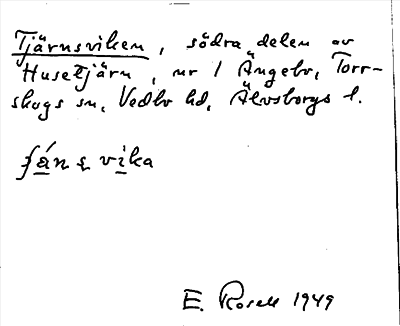 Tjärnsviken, södra delen av
Husetjärn, nr 1 Ängebo, Torr-
skogs sn, Vedbo hd, Älvsborgs l.
vika
E. Rosell 1949